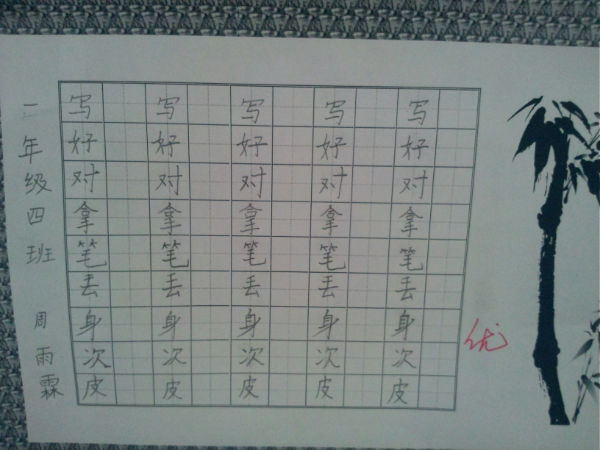 二年级四班 周雨霖
写 写 写 写 写
好 好 好 好 好
对 对 对 对 对
拿 拿 拿 拿 拿
笔 笔 笔 笔 笔
丢 丢 丢 丢 丢
身 身 身 身 身
次 次 次 次 次
皮 皮 皮 皮 皮
优